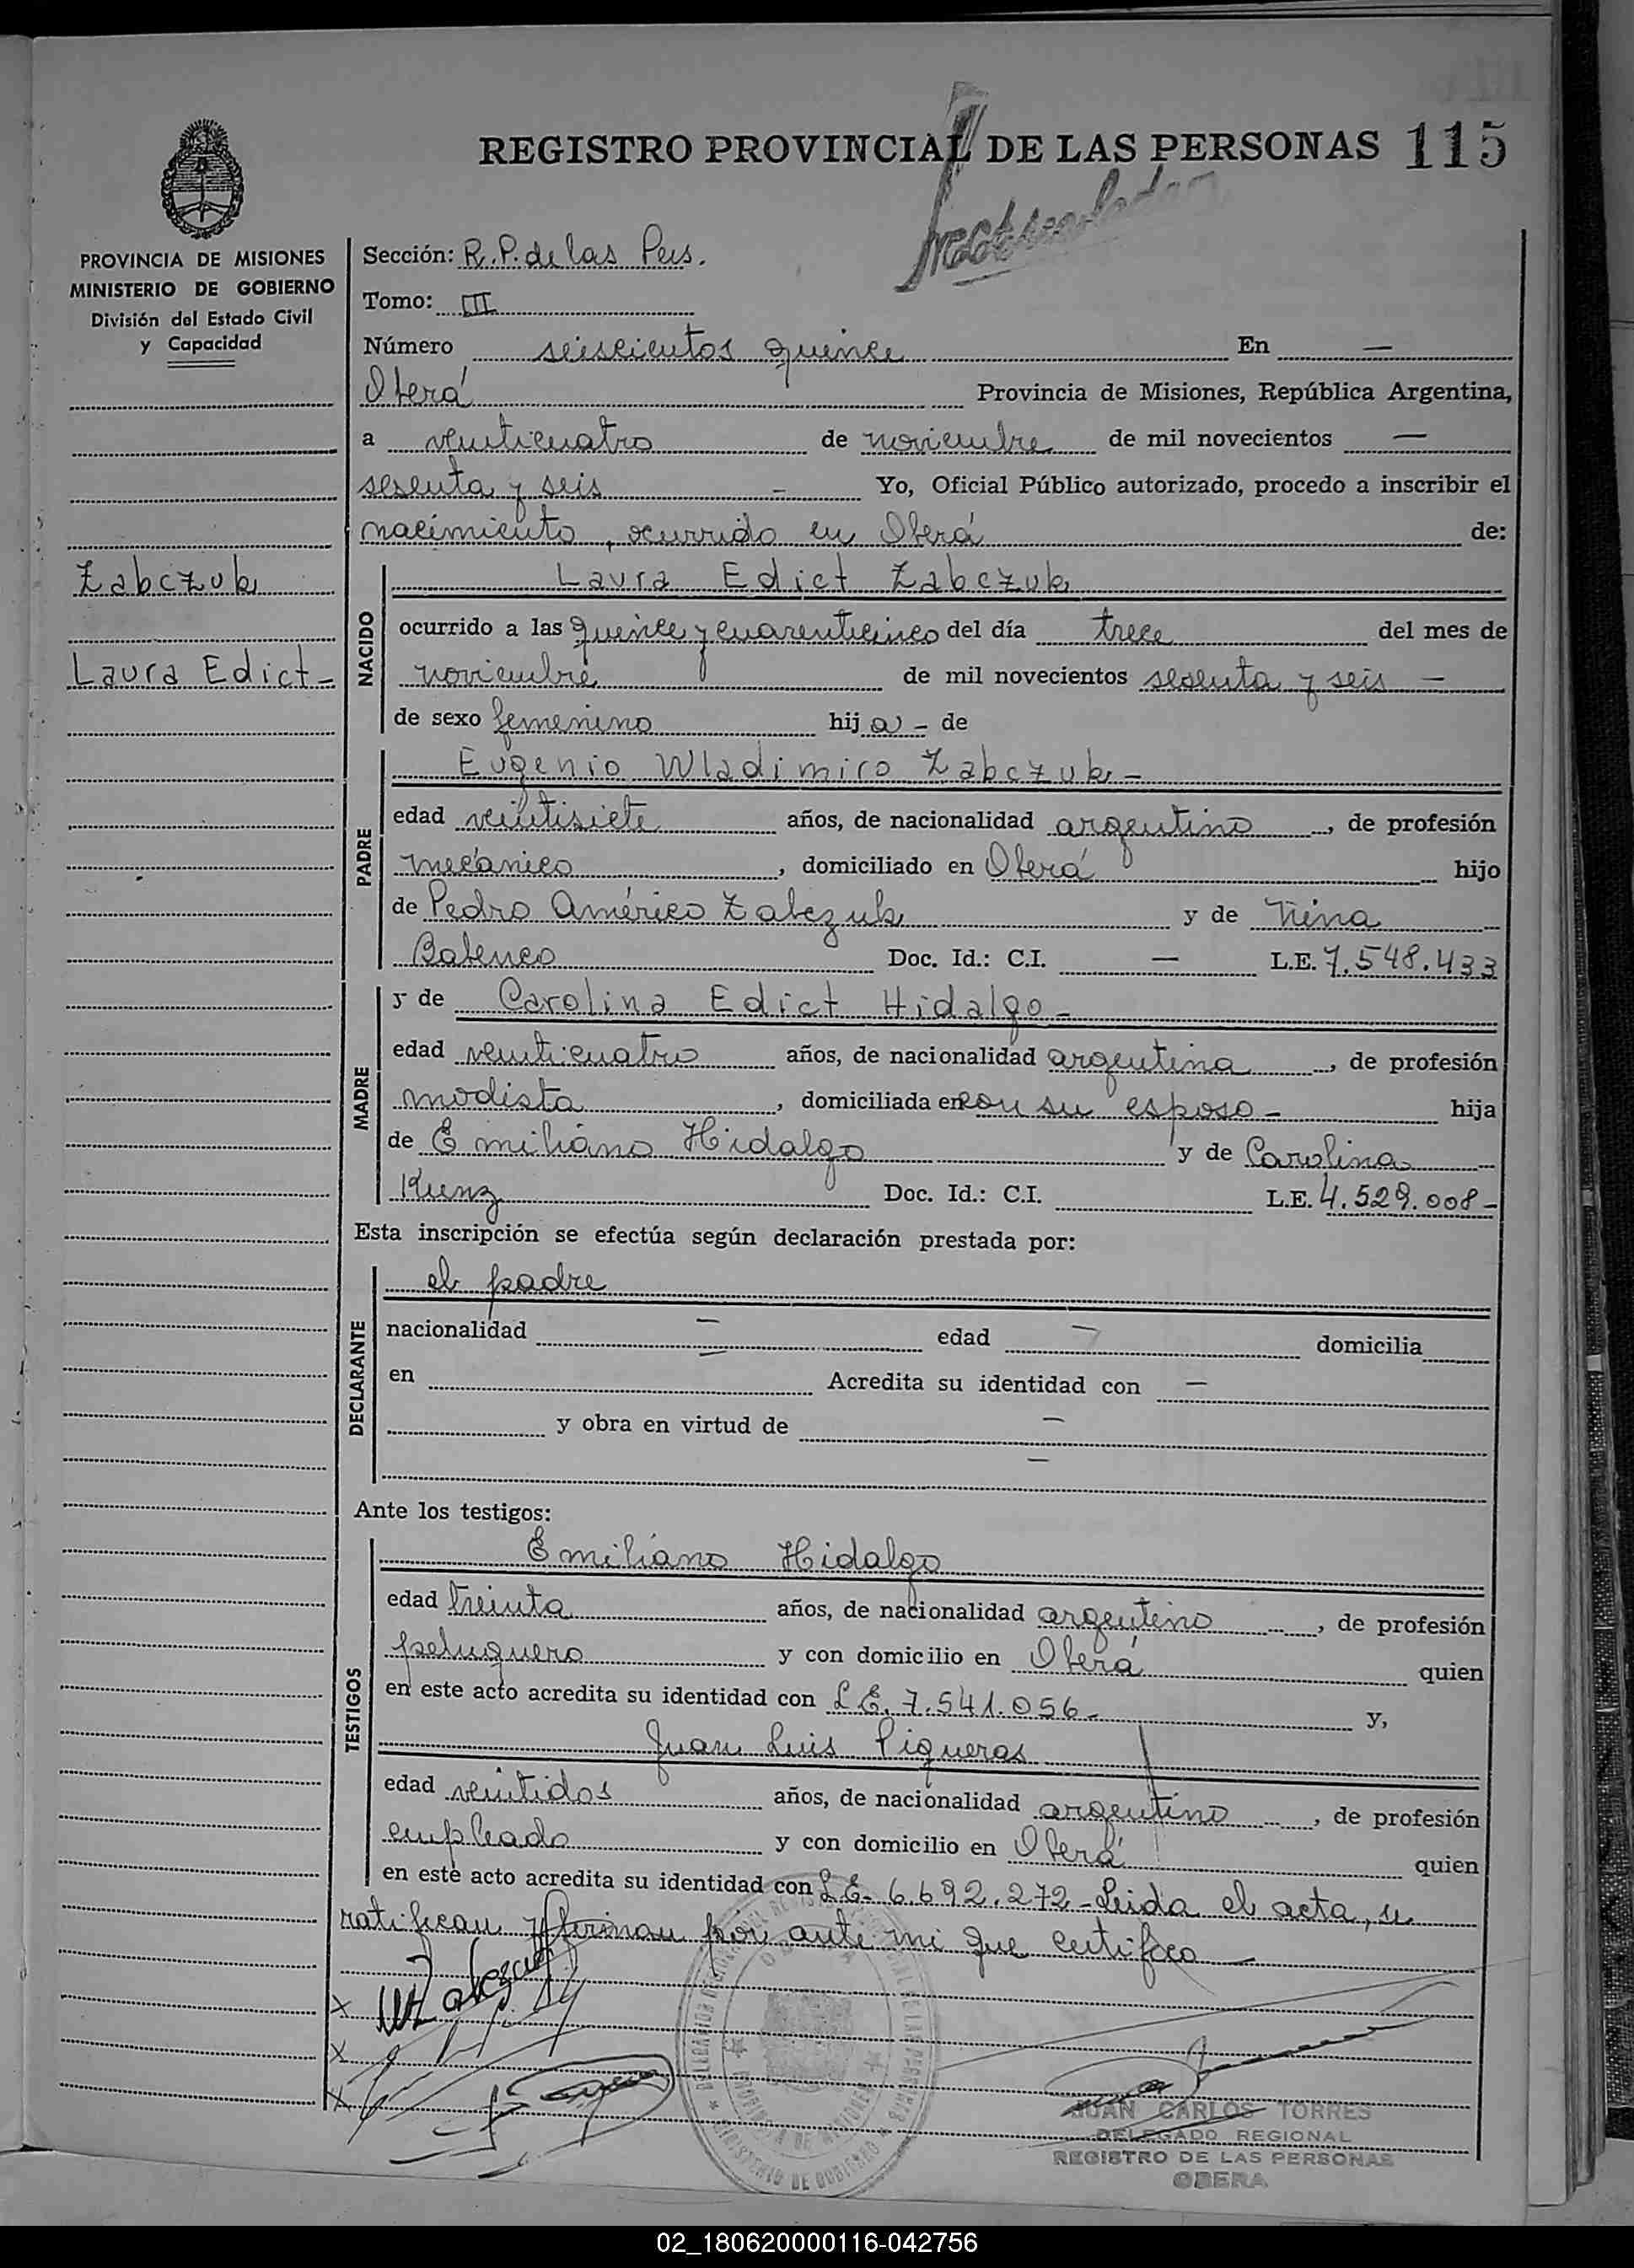 REGISTRO PROVINCIAL DE LAS PERSONAS 115
PROVINCIA DE MISIONES
MINISTERIO DE GOBIERNO
División del Estado Civil
y Capacidad
Zabczuk
Laura Edict -
Sección: R. P. de las Pers.
Tomo: III
Número seiscientos quince En —
Oberá Provincia de Misiones, República Argentina,
a veinticuatro de noviembre de mil novecientos —
sesenta y seis - Yo, Oficial Público autorizado, procedo a inscribir el
nacimiento, ocurrido en Oberá de:
NACIDO
Laura Edict Zabczuk
ocurrido a las quince y cuarenticinco del día trece del mes de
noviembre de mil novecientos sesenta y seis -
de sexo femenino hij a - de
PADRE
Eugenio Wladimiro Zabczuk -
edad veintisiete años, de nacionalidad argentino, de profesión
mecánico, domiciliado en Oberá hijo
de Pedro Américo Zabczuk y de Nina
Batenco Doc. Id.: C.I. — L.E. 7.548.433
MADRE
y de Carolina Edict Hidalgo -
edad veinticuatro años, de nacionalidad argentina, de profesión
modista, domiciliada en con su esposo - hija
de Emiliano Hidalgo y de Carolina
Kunz Doc. Id.: C.I. L.E. 4.529.008 -
Esta inscripción se efectúa según declaración prestada por:
DECLARANTE
el padre
nacionalidad — edad — domicilia
en — Acredita su identidad con —
y obra en virtud de —
—
Ante los testigos:
TESTIGOS
Emiliano Hidalgo
edad treinta años, de nacionalidad argentino, de profesión
peluquero y con domicilio en Oberá quien
en este acto acredita su identidad con L.E. 7.541.056 - y,
Juan Luis Piqueras
edad veintidos años, de nacionalidad argentino, de profesión
empleado y con domicilio en Oberá quien
en este acto acredita su identidad con L.E. 6.692.272 - Leida el acta, se
ratifican y firman por ante mi que certifico —
JUAN CARLOS TORRES
DELEGADO REGIONAL
REGISTRO DE LAS PERSONAS
OBERA
02_180620000116-042756